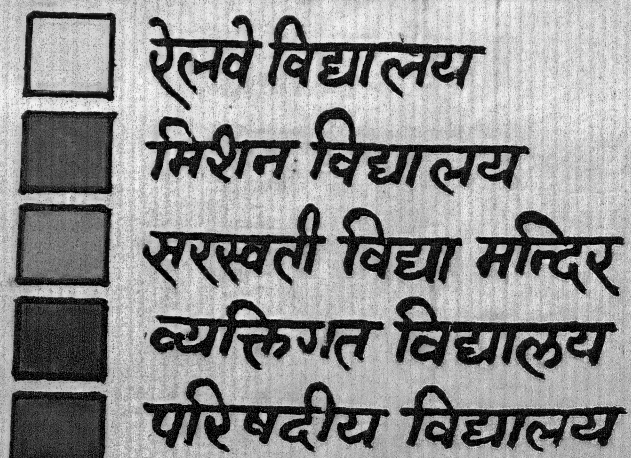 रेलवे विद्यालय
मिशन विद्यालय
सरस्वती विद्या मन्दिर
व्यक्तिगत विद्यालय
परिषदीय विद्यालय